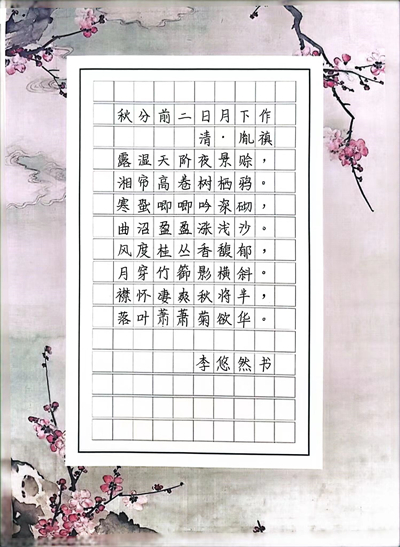 秋分前二日月下作
清·胤禛
露湿天阶夜景赊，
湘帘高卷树栖鸦。
寒蛩唧唧吟深砌，
曲沼盈盈涨浅沙。
风度桂丛香馥郁，
月穿竹箭影横斜。
襟怀凄爽秋将半，
落叶萧萧菊欲华。
李悠然书